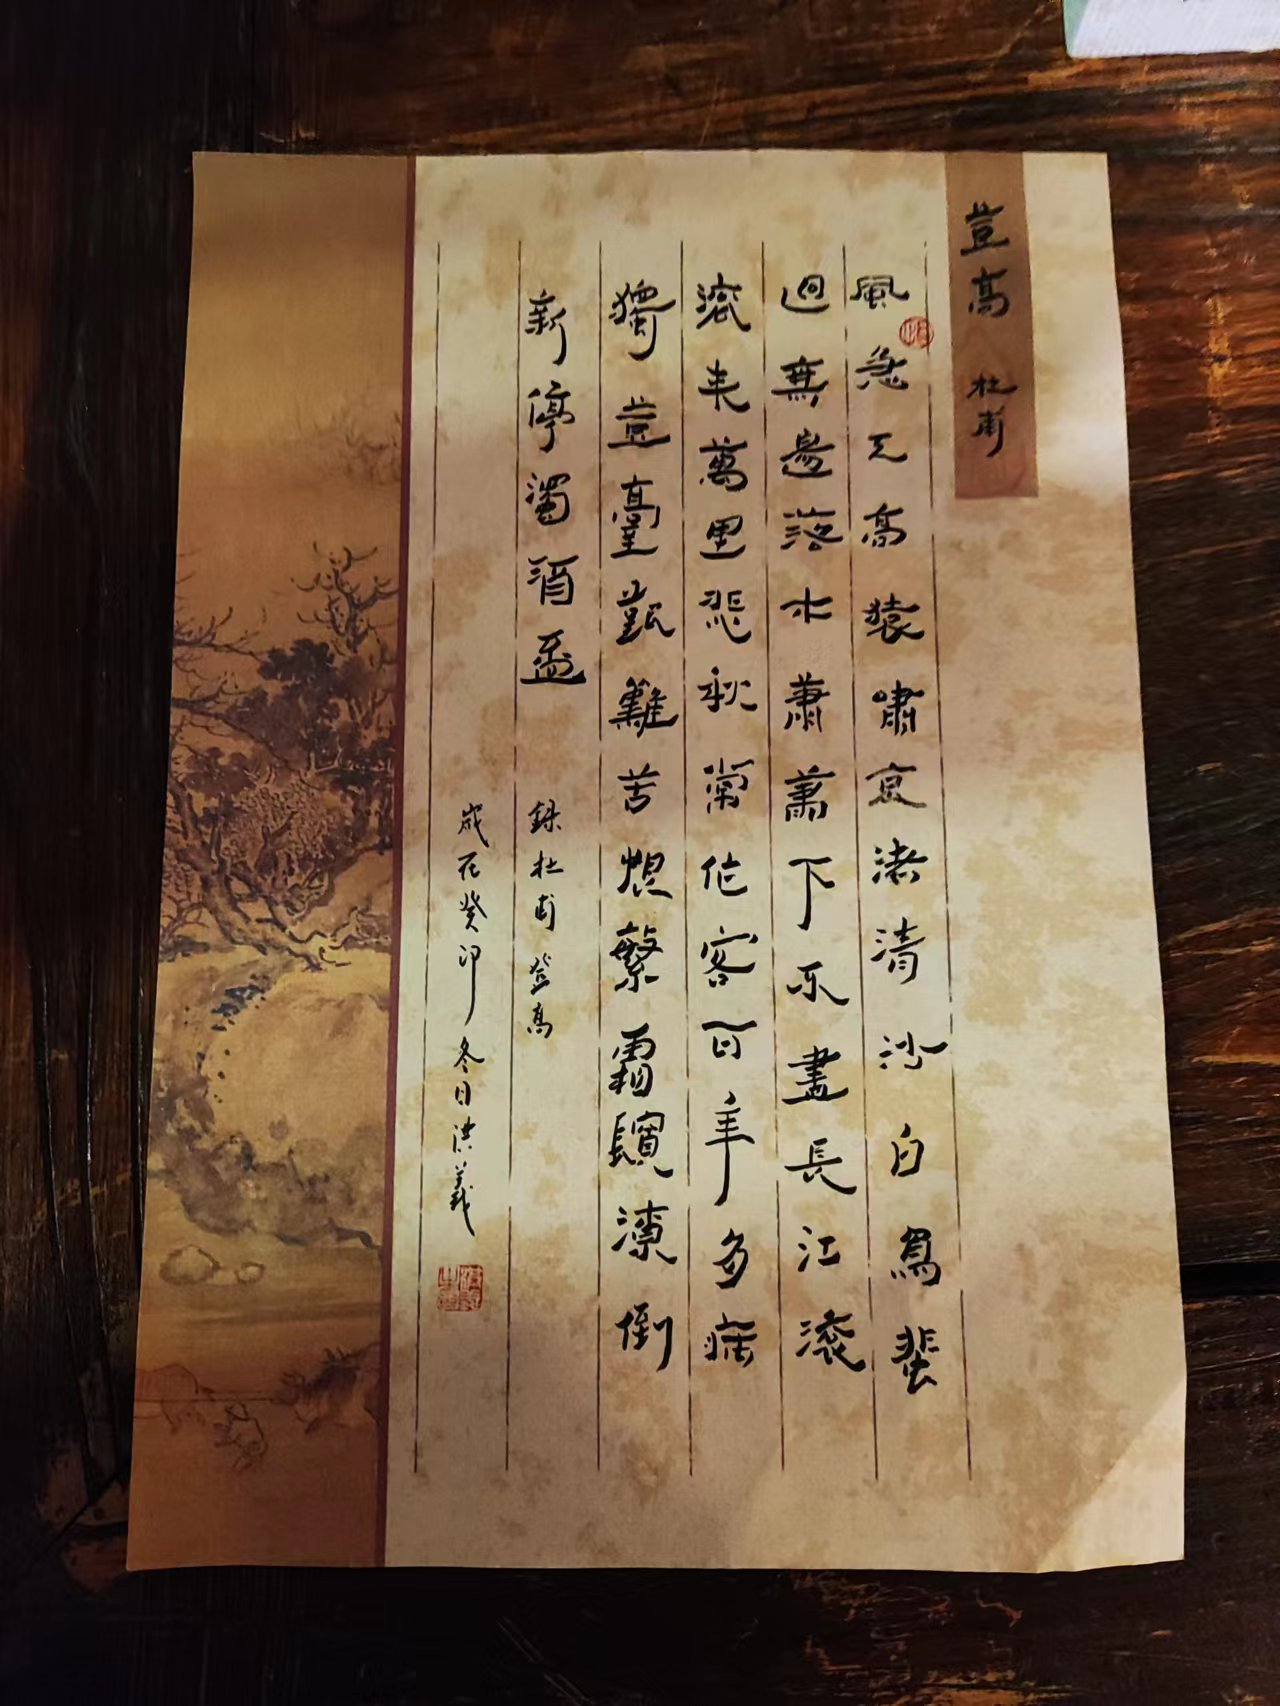 登高 杜甫
風急天高猿嘯哀渚清沙白鳥蜚
迴無邊落木蕭蕭下不盡長江滾
滾来萬里悲秋常作客百年多病
獨登臺艱難苦恨繁霜鬢潦倒
新停濁酒盃 録杜甫登高
歲在癸卯冬日洪義